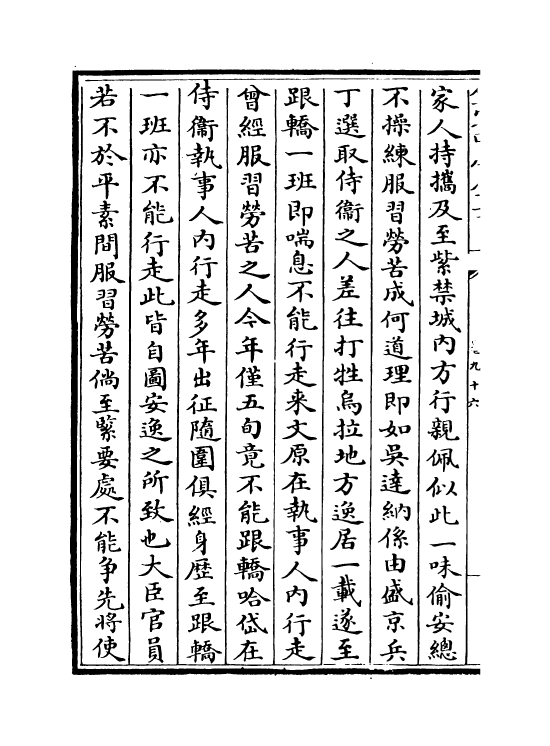 家人持攜及至紫禁城內方行親佩似此一味偷安總
不操練服習勞苦成何道理即如吳達納係由盛京兵
丁選取侍衞之人差往打牲烏拉地方逸居一載遂至
跟轎一班即喘息不能行走来文原在執事人內行走
曾經服習勞苦之人今年僅五旬竟不能跟轎哈岱在
侍衞執事人內行走多年出征隨圍俱經身歷至跟轎
一班亦不能行走此皆自圖安逸之所致也大臣官員
若不於平素間服習勞苦倘至緊要處不能争先將使
卷九十六